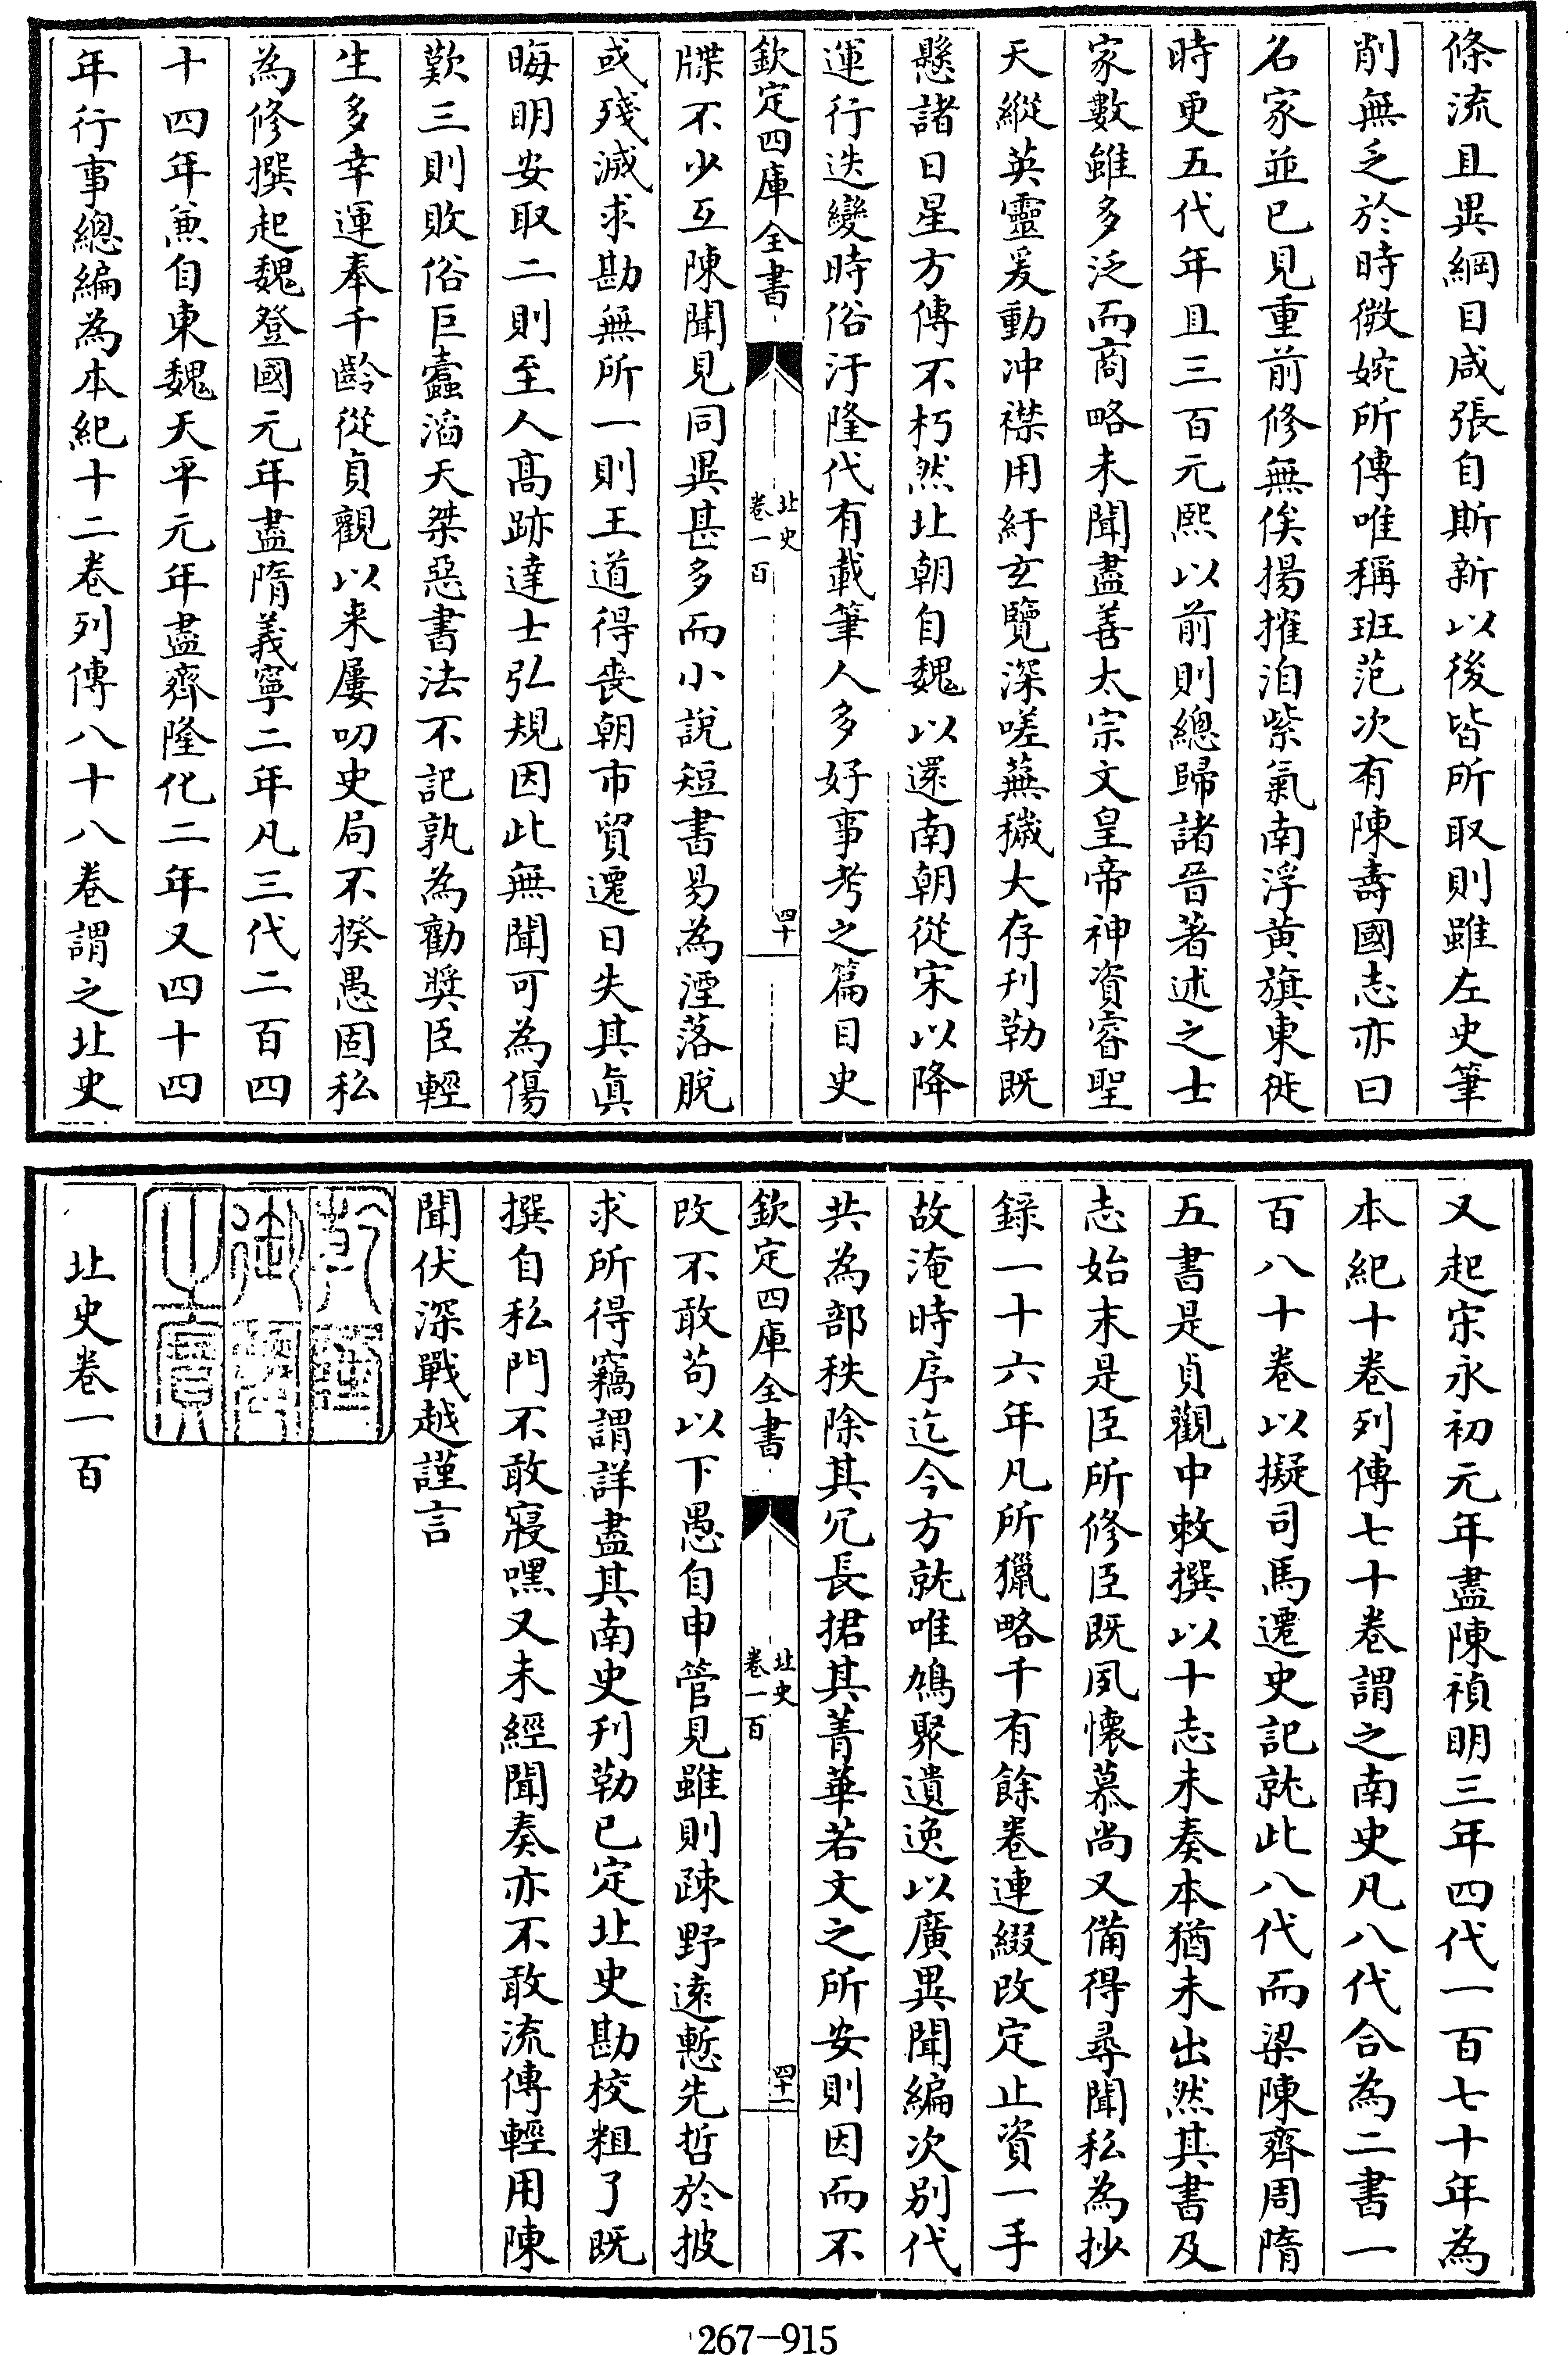 條流且異綱目咸張自斯新以後皆所取則雖左史筆
削無乏於時微婉所傳唯稱班范次有陳壽國志亦曰
名家並已見重前修無俟揚搉洎紫氣南浮黄旗東徙
時更五代年且三百元熙以前則總歸諸晉著述之士
家數雖多泛而商略未聞盡善太宗文皇帝神資睿聖
天縱英靈爰動冲襟用紆玄覽深嗟蕪穢大存刋勒既
懸諸日星方傳不朽然北朝自魏以還南朝從宋以降
運行迭變時俗汙隆代有載筆人多好事考之篇目史
欽定四庫全書
北史
卷一百
四十
牒不少互陳聞見同異甚多而小說短書易為湮落脫
或殘滅求勘無所一則王道得喪朝市貿遷日失其眞
晦明安取二則至人髙跡達士弘規因此無聞可為傷
歎三則敗俗巨蠹滔天桀惡書法不記孰為勸奬臣輕
生多幸運奉千齡從貞觀以来屢叨史局不揆愚固私
為修撰起魏登國元年盡隋義寧二年凡三代二百四
十四年兼自東魏天平元年盡齊隆化二年又四十四
年行事總編為本紀十二卷列傳八十八卷謂之北史
又起宋永初元年盡陳禎明三年四代一百七十年為
本紀十卷列傳七十卷謂之南史凡八代合為二書一
百八十卷以擬司馬遷史記就此八代而梁陳齊周隋
五書是貞觀中敕撰以十志未奏本猶未出然其書及
志始末是臣所修臣既夙懷慕尚又備得尋聞私為抄
錄一十六年凡所獵略千有餘卷連綴改定止資一手
故淹時序迄今方就唯鳩聚遺逸以廣異聞編次别代
共為部秩除其冗長捃其菁華若文之所安則因而不
欽定四庫全書
北史
卷一百
四十一
改不敢苟以下愚自申管見雖則疎野遠慙先哲於披
求所得竊謂詳盡其南史刋勒已定北史勘校粗了既
撰自私門不敢寢嘿又未經聞奏亦不敢流傳輕用陳
聞伏深戰越謹言
乾隆
御覽
之寶
北史卷一百
267-915